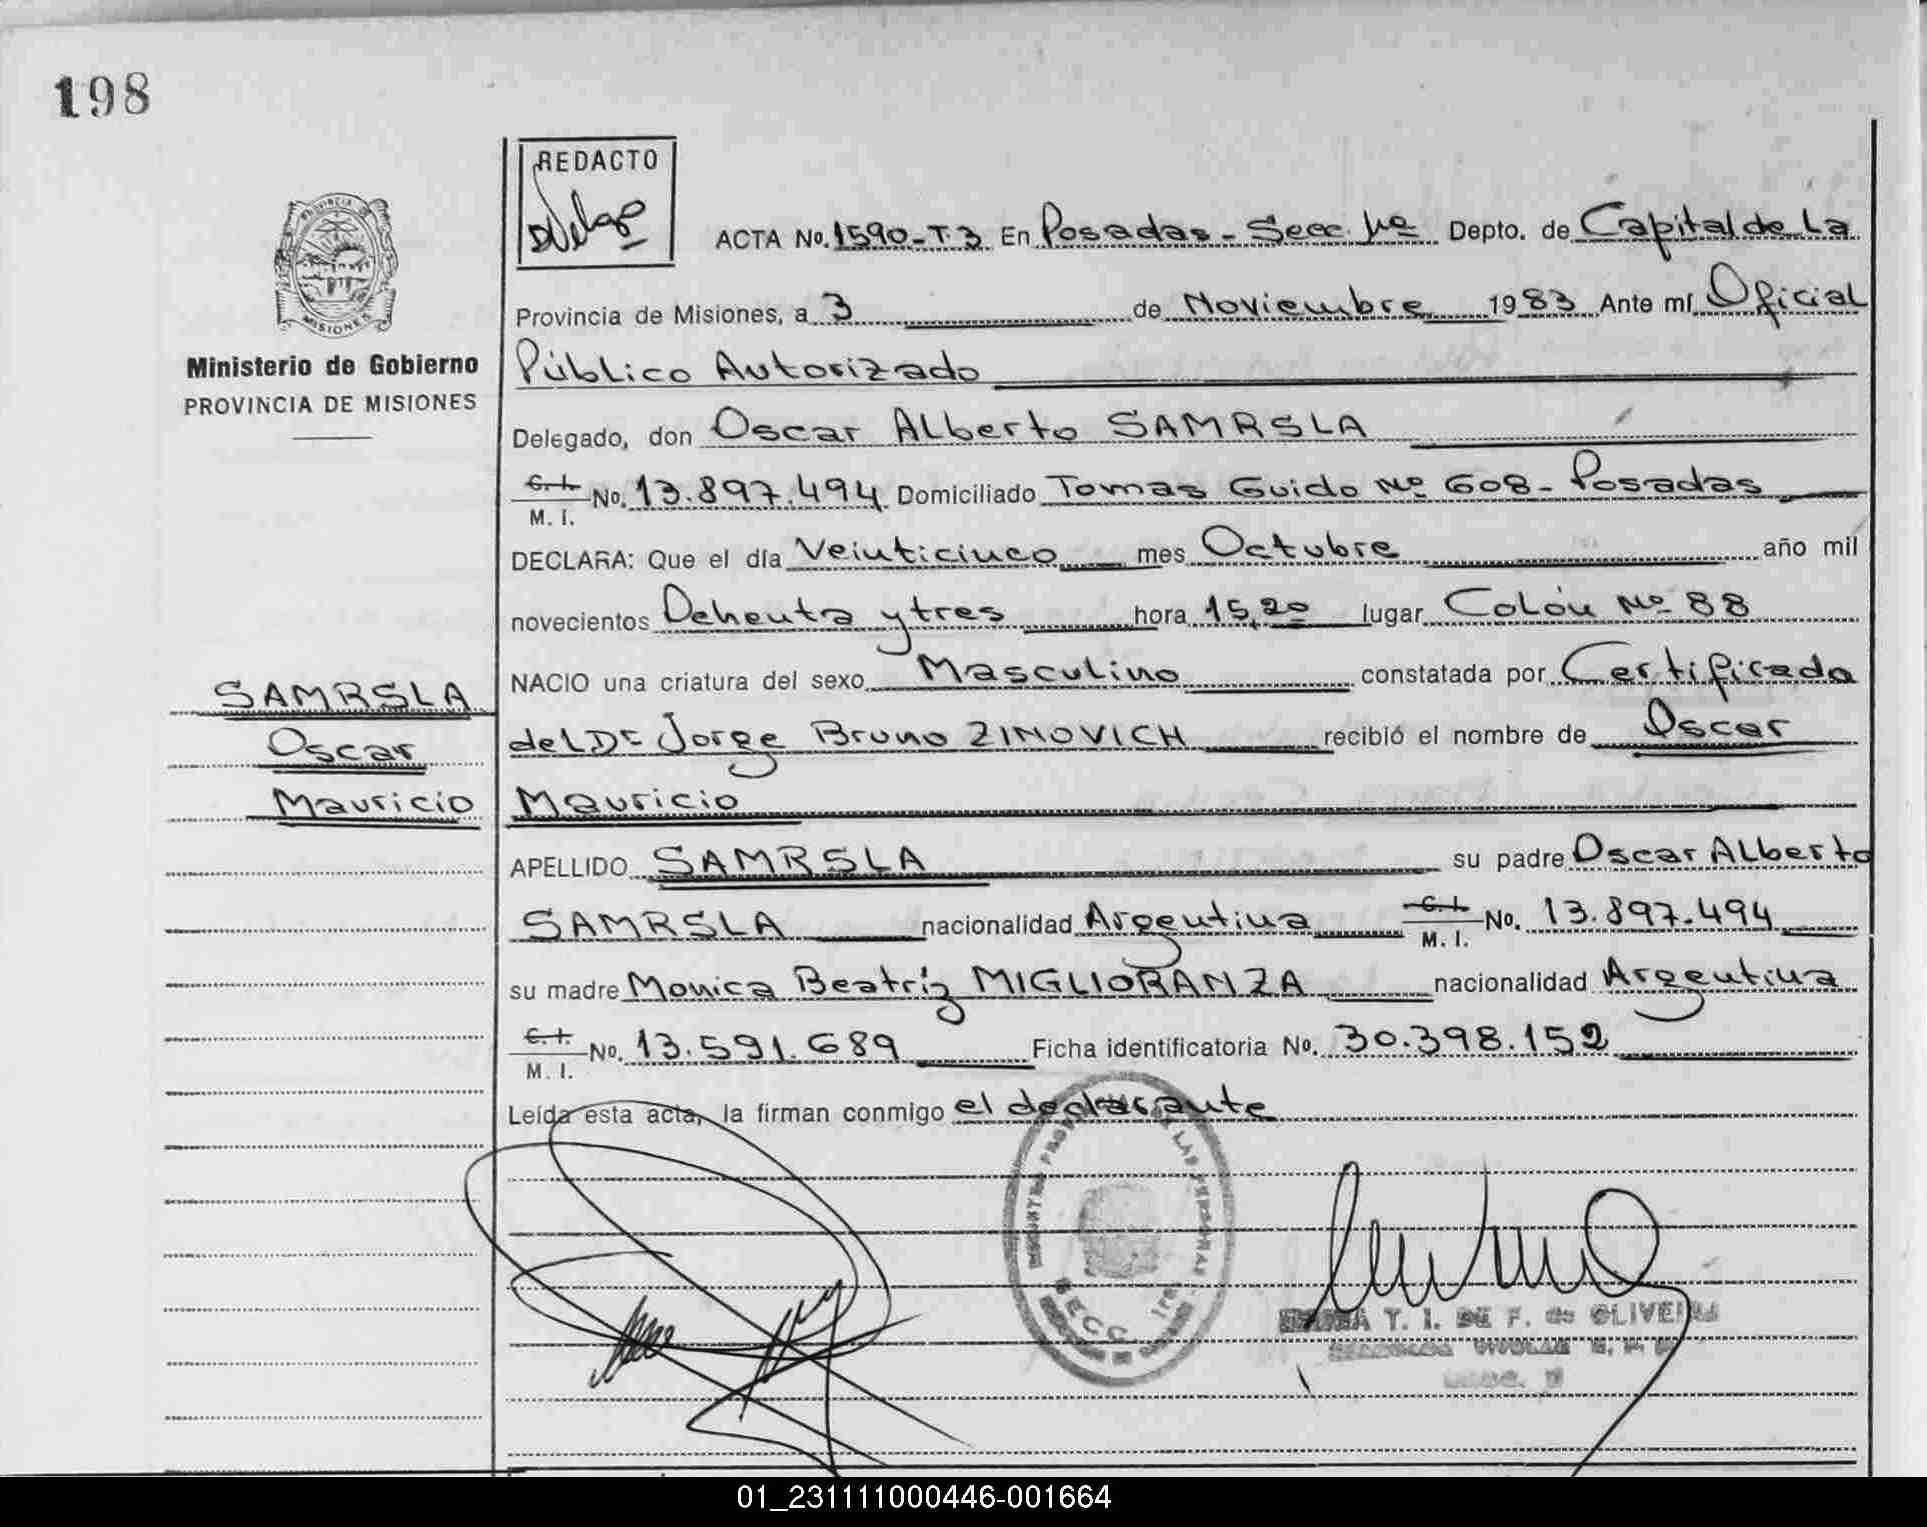 198
REDACTO
PROVINCIA DE
MISIONES
Ministerio de Gobierno
PROVINCIA DE MISIONES
SAMRSLA
Oscar
Mauricio
ACTA No. 1590-T.3. En Posadas - Secc. 1ra Depto. de Capital de La
Provincia de Misiones, a 3 de Noviembre 1983 Ante mí Oficial
Público Autorizado
Delegado, don Oscar Alberto SAMRSLA
C. I. M. I. No. 13.897.494 Domiciliado Tomas Guido Nº 608 - Posadas
DECLARA: Que el día Veinticinco mes Octubre año mil
novecientos Ochenta y tres hora 15,20 lugar Colón Nº 88
NACIO una criatura del sexo Masculino constatada por Certificado
del Dr Jorge Bruno ZINOVICH recibió el nombre de Oscar
Mauricio
APELLIDO SAMRSLA su padre Oscar Alberto
SAMRSLA nacionalidad Argentina C. I. M. I. No. 13.897.494
su madre Monica Beatriz MIGLIORANZA nacionalidad Argentina
C. I. M. I. No. 13.591.689 Ficha identificatoria No. 30.398.152
Leída esta acta, la firman conmigo el declarante
DE LAS PERSONAS
SECC 1ra
T. I. DE F. de OLIVEIRA
01_231111000446-001664